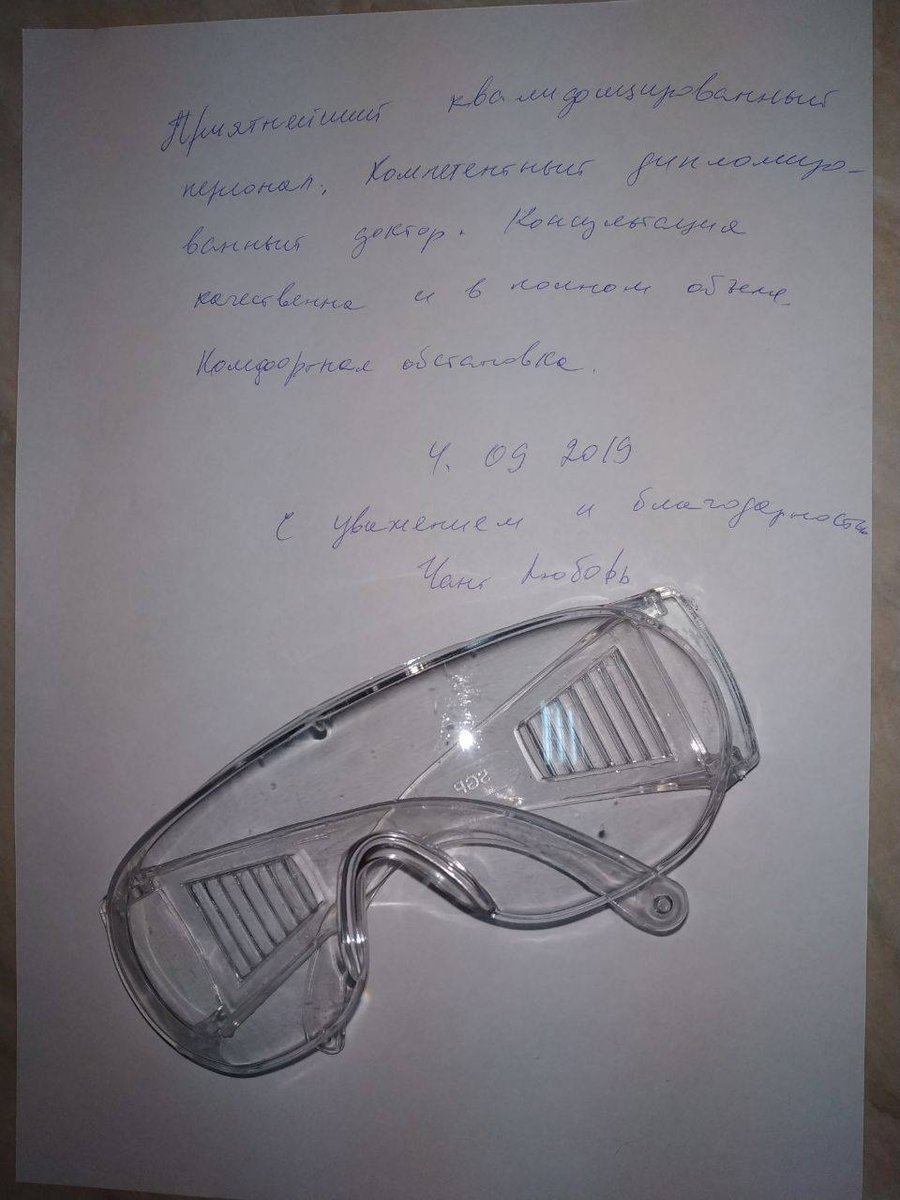 Приятнейший квалифицированный
персонал. Компетентный дипломиро-
ванный доктор. Консультация
качественна и в полном объеме.
Комфортная обстановка.
4. 09 2019
С уважением и благодарностью
Любовь